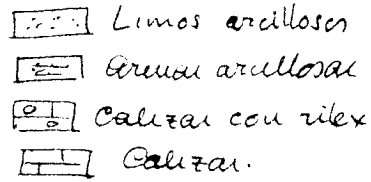 Limos arcillosos
Arenas arcillosas
Calizas con silex
Calizas.